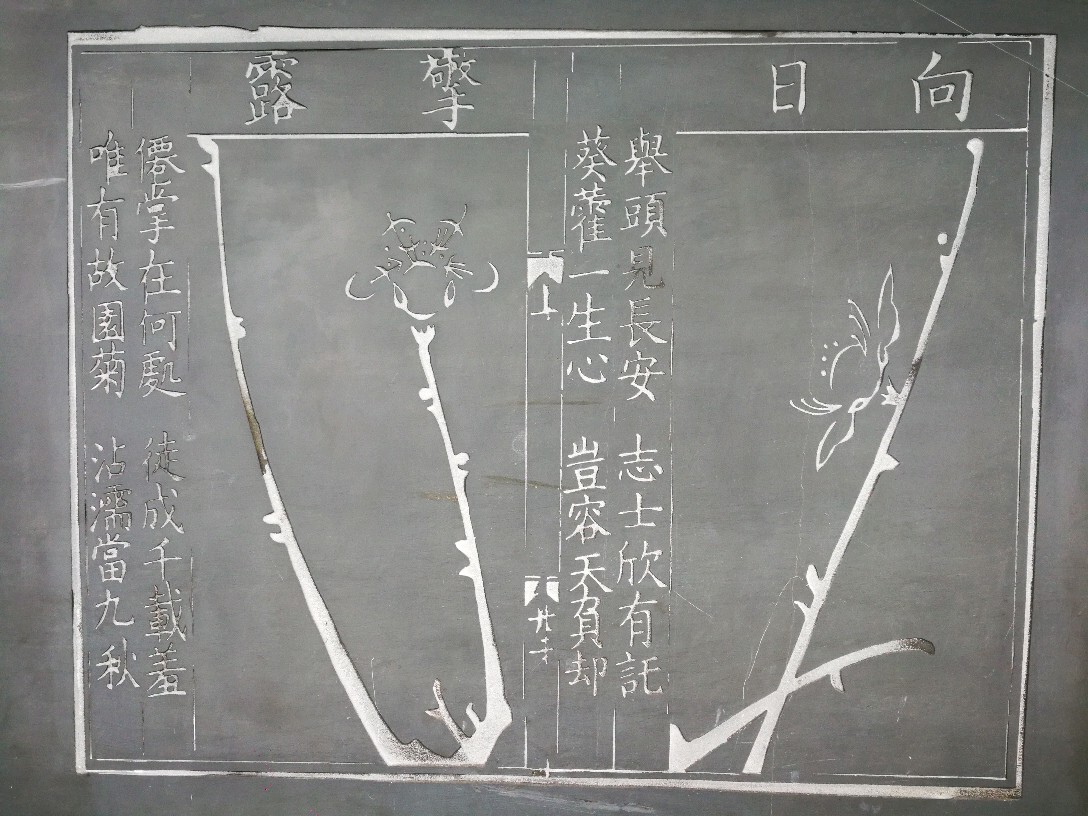 向日
舉頭見長安 志士欣有託
葵藿一生心 豈容天負却
上
擎露
僊掌在何處 徒成千載羞
唯有故園菊 沾濡當九秋